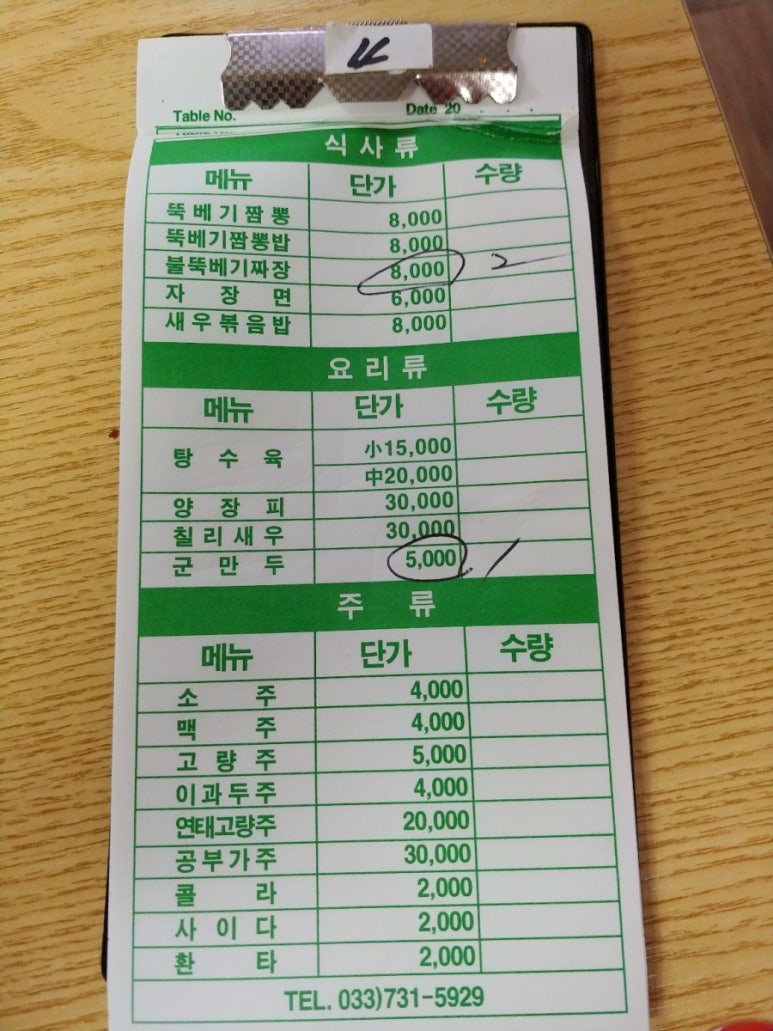 4
Table No. Date 20 . . .
식사류
메뉴 단가 수량
뚝베기짬뽕 8,000
뚝베기짬뽕밥 8,000
불뚝베기짜장 8,000 2
자장면 6,000
새우볶음밥 8,000
요리류
메뉴 단가 수량
탕수육 小15,000
中20,000
양장피 30,000
칠리새우 30,000
군만두 5,000 1
주류
메뉴 단가 수량
소주 4,000
맥주 4,000
고량주 5,000
이과두주 4,000
연태고량주 20,000
공부가주 30,000
콜라 2,000
사이다 2,000
환타 2,000
TEL. 033)731-5929